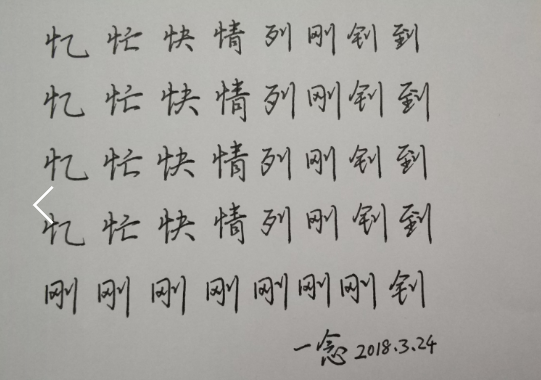 忆忙快情列刚钊到
忆忙快情列刚钊到
忆忙快情列刚钊到
忆忙快情列刚钊到
刚刚刚刚刚刚刚钊
一念 2018.3.24